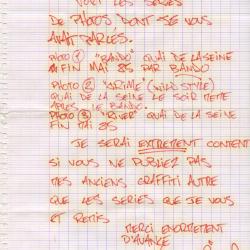 VOICI LES SERIES
DE PHOTOS DONT JE VOUS
AVAIT PARLES.
PHOTO ① "BANDO" QUAI DE LA SEINE
FIN MAI 85 PAR BANDO
PHOTO ② "CRIME" (WILD STYLE)
QUAI DE LA SEINE LE SOIR MEME
APRES LE BANDO.
PHOTO ③ "RIVER" QUAI DE LA SEINE
FIN MAI 85
JE SERAI EXTREMENT CONTENT
SI VOUS NE PUBLIEZ PAS
MES ANCIENS GRAFFITI AUTRE
QUE LES SERIES QUE JE VOUS
ET REMIS
MERCI ENORMEMENT
D'AVANCE